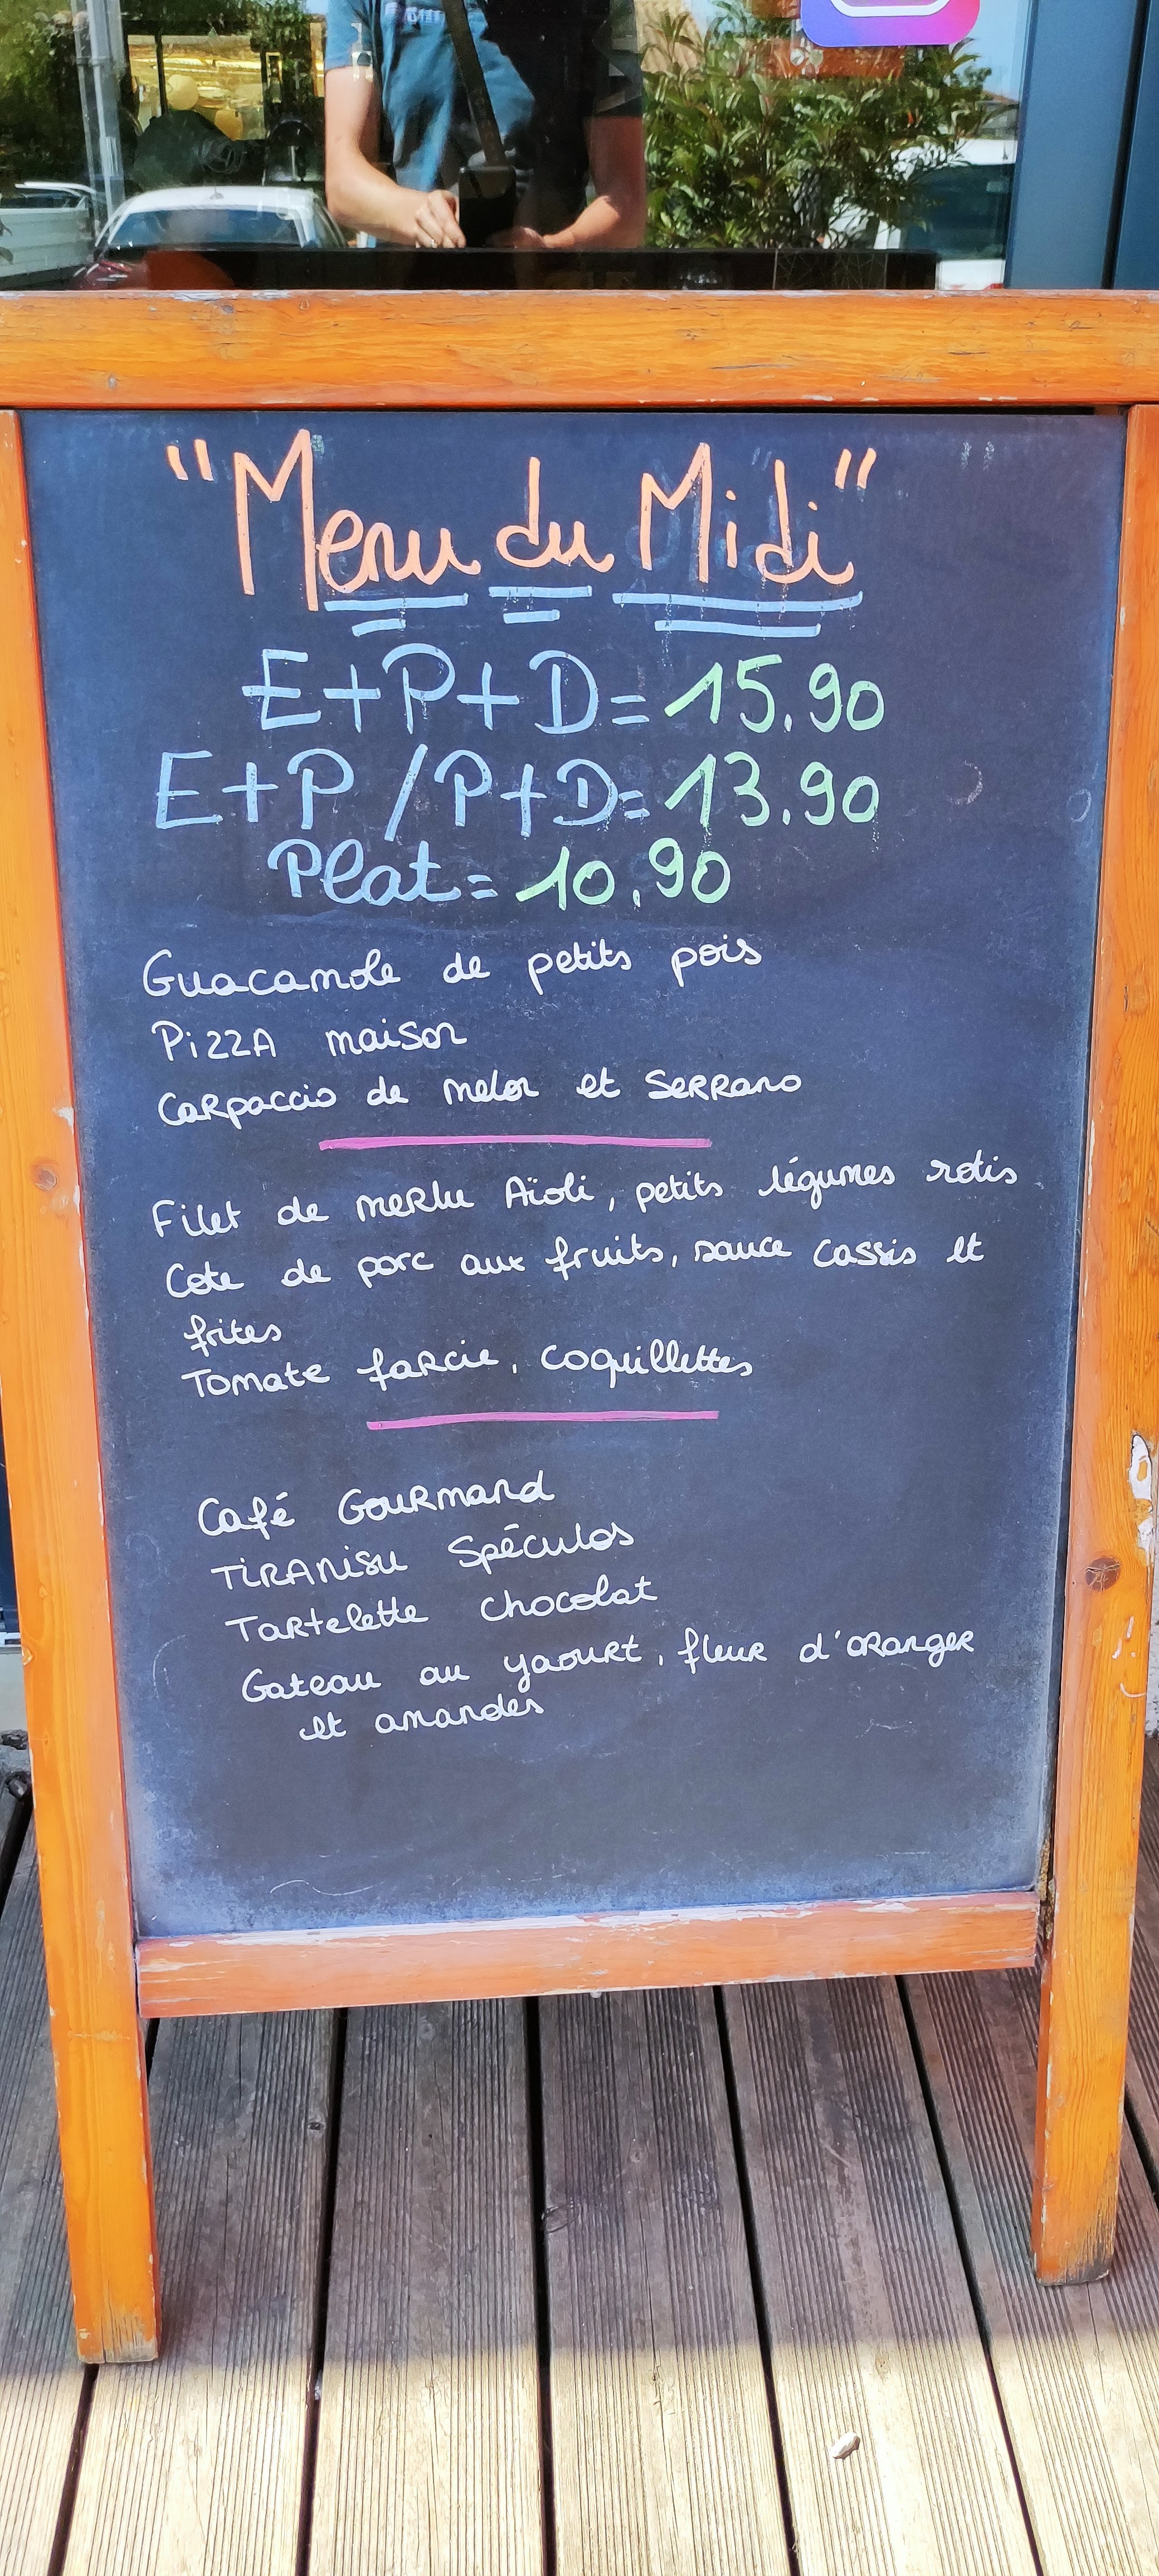 "Menu du Midi"
E+P+D=15.90
E+P/P+D=13.90
Plat=10.90
Guacamole de petits pois
Pizza maison
Carpaccio de melon et Serrano
Filet de merlu Aïoli, petits légumes rotis
Cote de porc aux fruits, sauce cassis et
frites
Tomate farcie, coquillettes
Café Gourmand
Tiramisu Spéculos
Tartelette chocolat
Gateau au yaourt, fleur d'oranger
et amandes